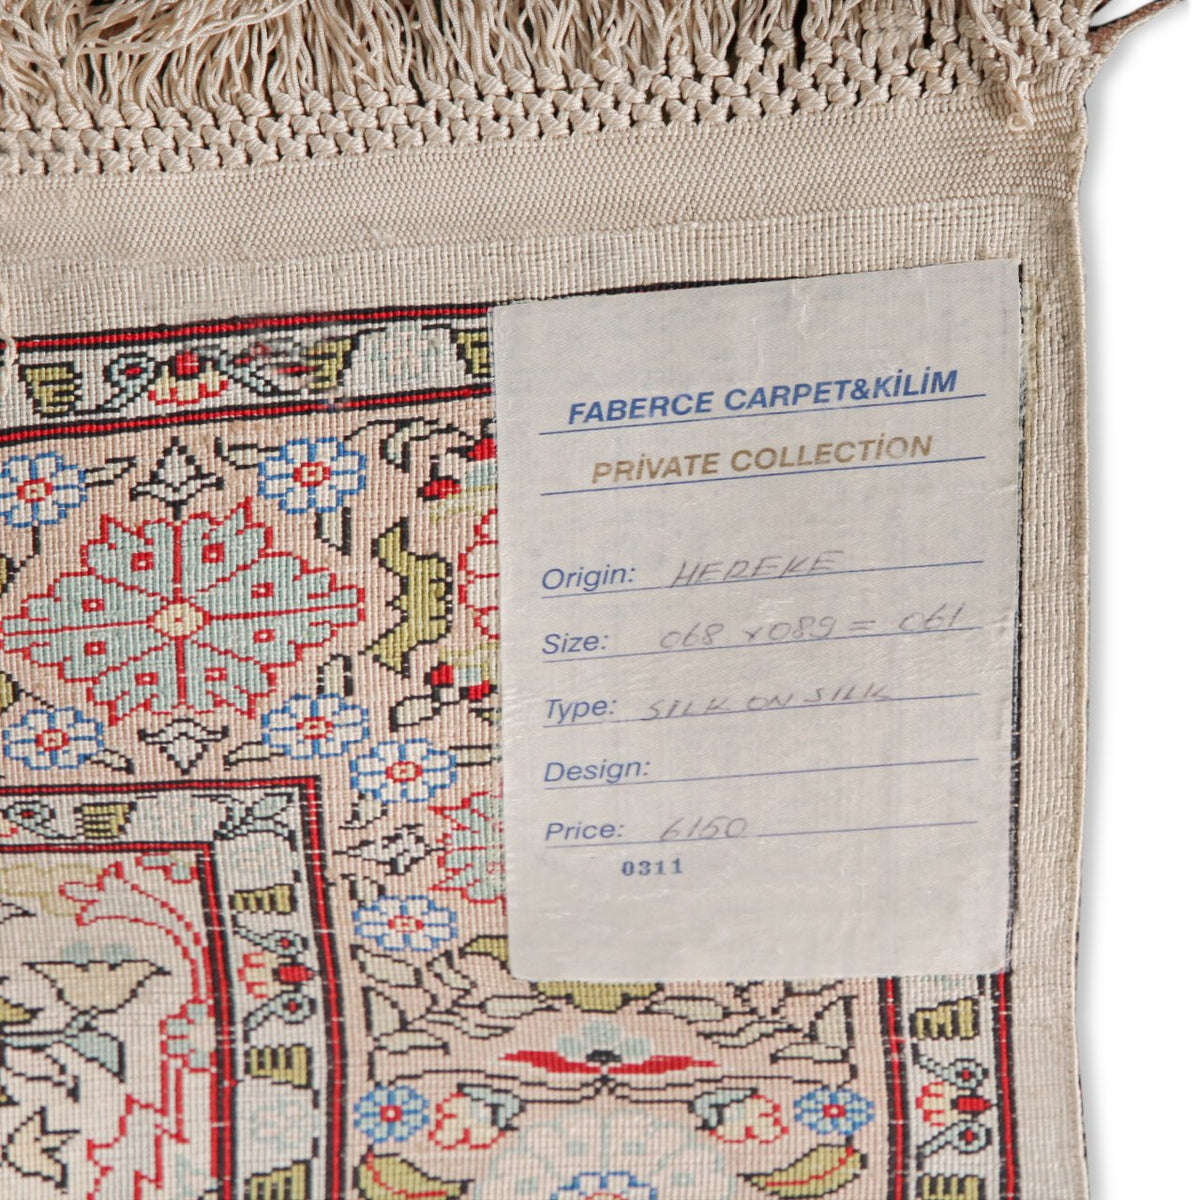 FABERCE CARPET&KİLİM
PRİVATE COLLECTİON
Origin: HEREKE
Size: 068 x 089 = 061
Type: SILK ON SILK
Design:
Price: 6150
0311